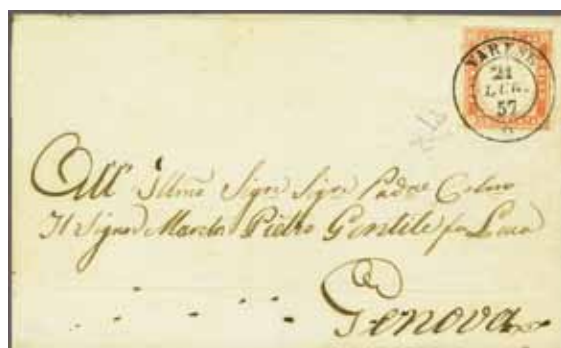 VARESE
21
LUG.
57
All' Illmo Sigr Sigr Padre Colmo
Il Signor Marche Pietro Gentile fu Luca
Genova